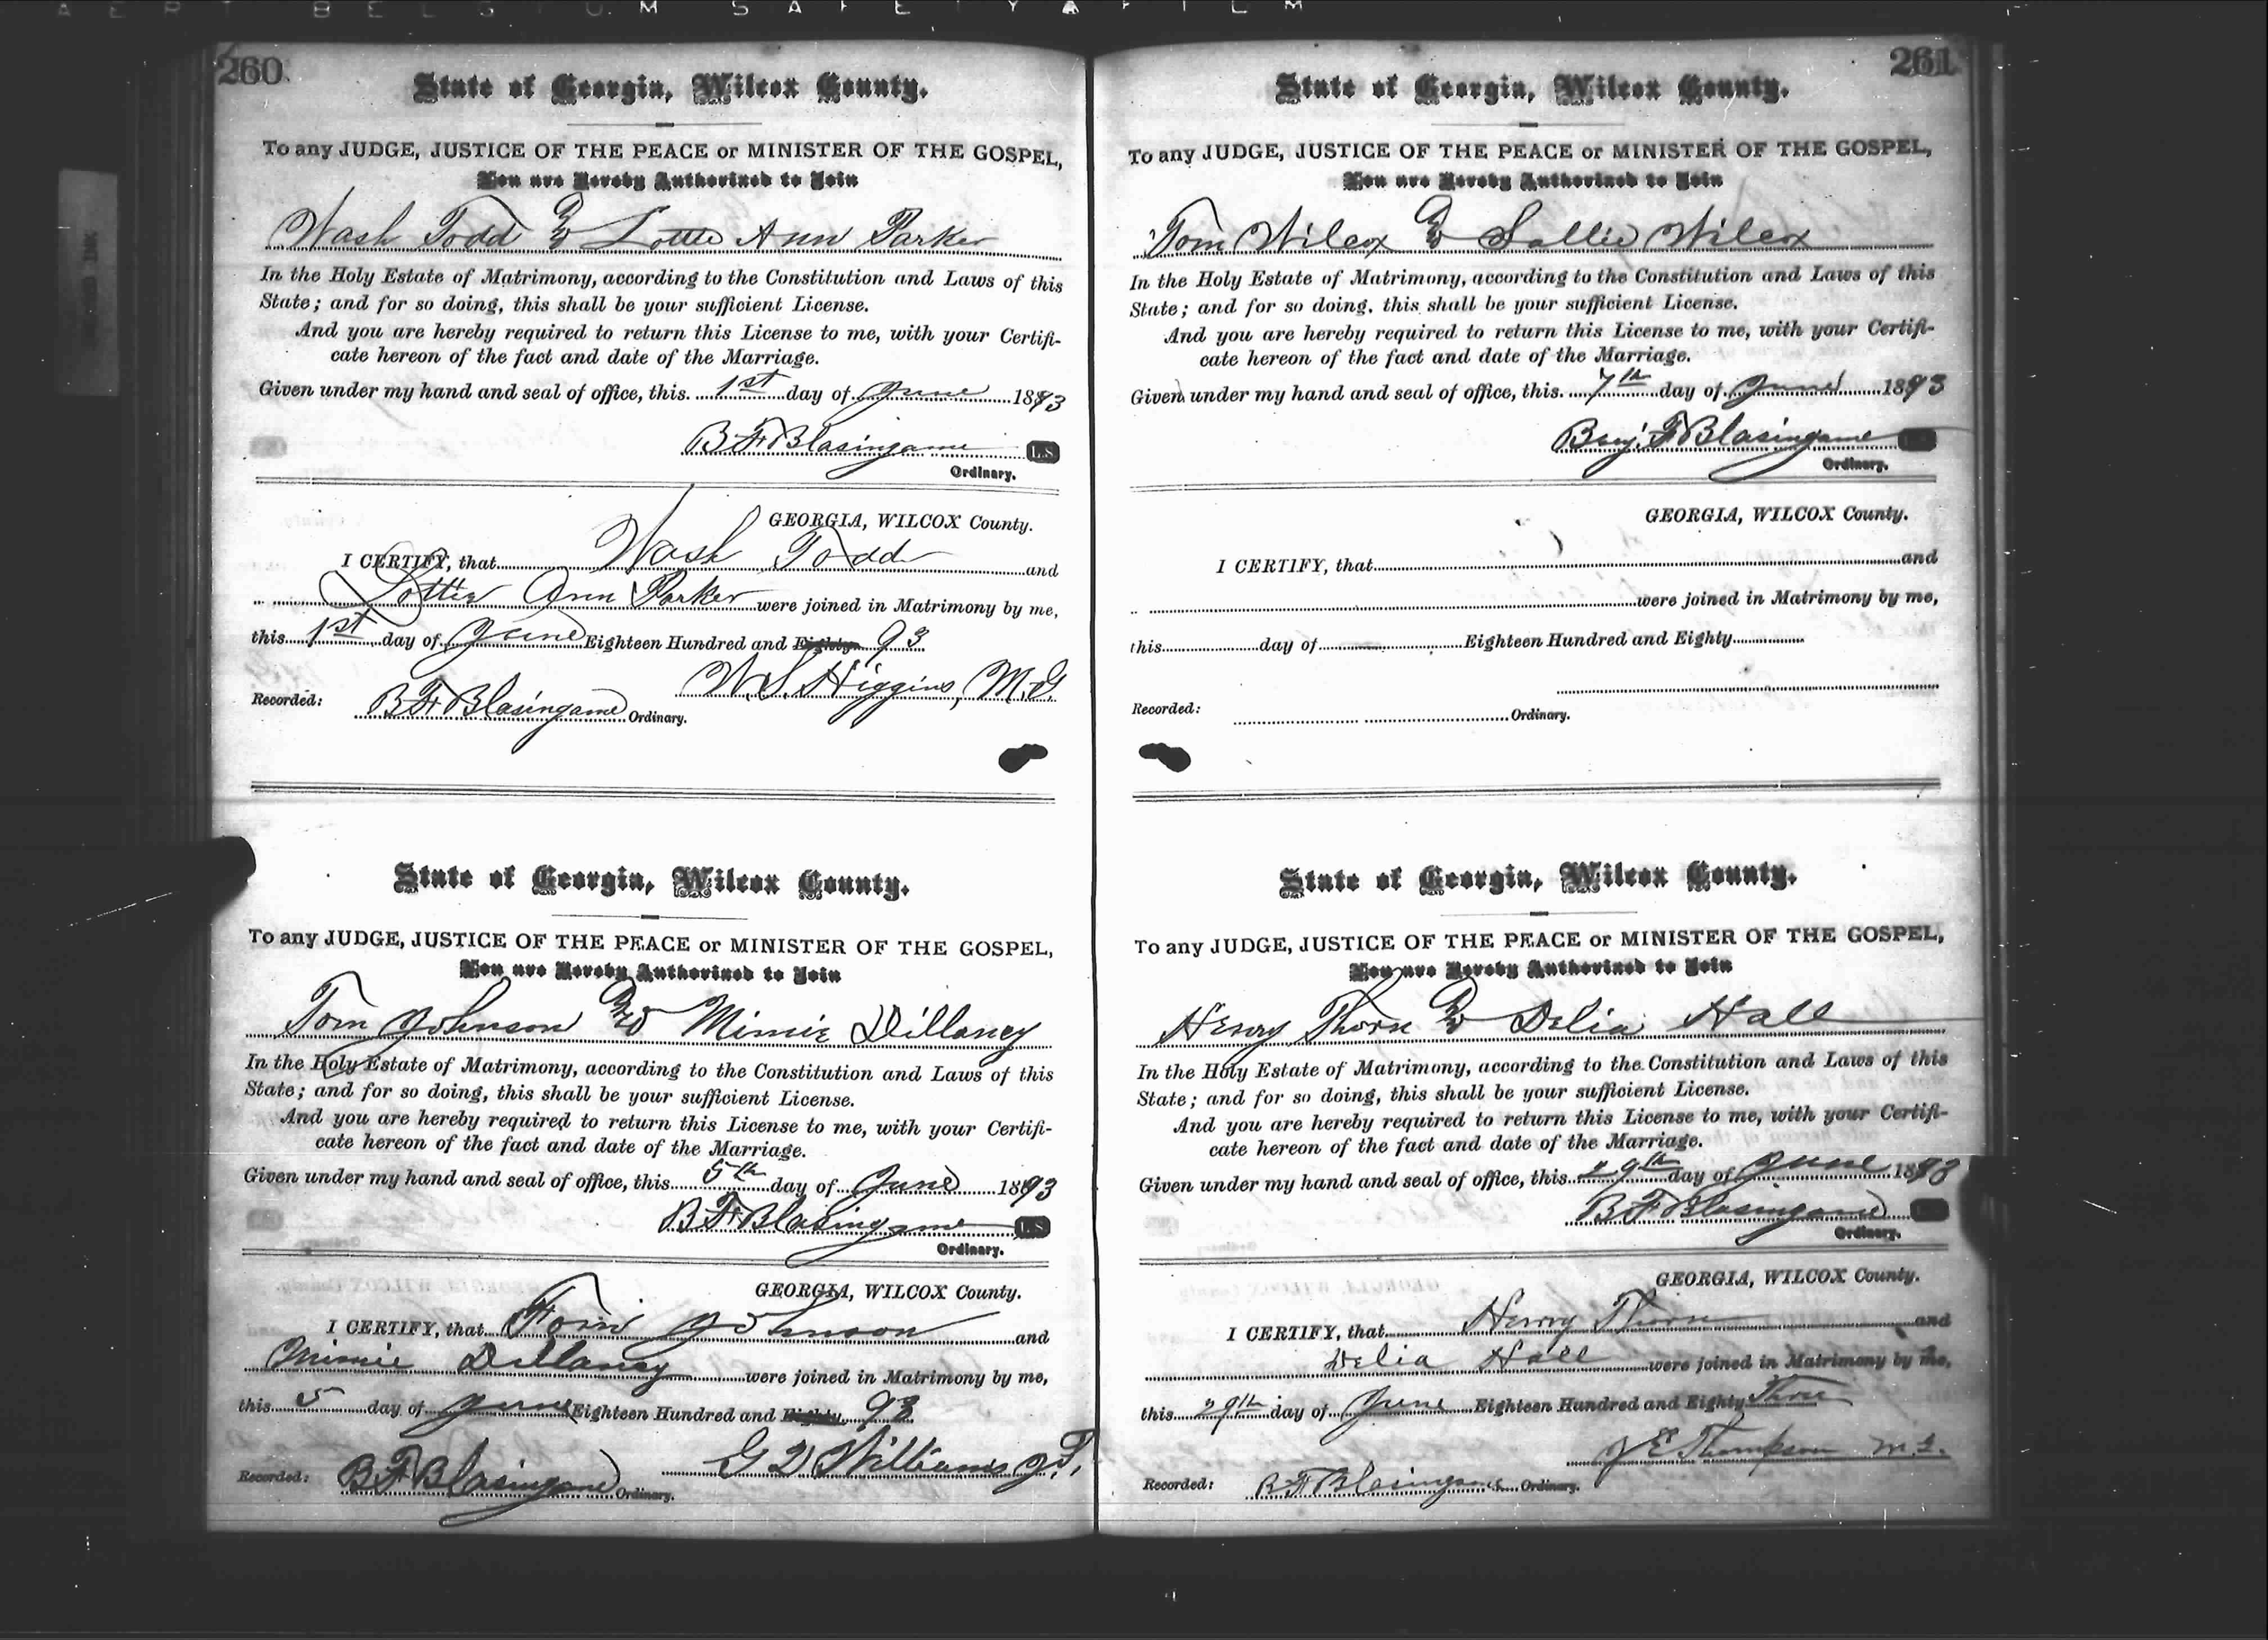 AERT BELGIUM SAFETY FILM
260
State of Georgia, Wilcox County.
To any JUDGE, JUSTICE OF THE PEACE or MINISTER OF THE GOSPEL,
You are Hereby Authorized to Join
Wash Todd & Lottie Ann Parker
In the Holy Estate of Matrimony, according to the Constitution and Laws of this
State; and for so doing, this shall be your sufficient License.
And you are hereby required to return this License to me, with your Certifi-
cate hereon of the fact and date of the Marriage.
Given under my hand and seal of office, this 1st day of June 1893
B F Blasingame L.S
Ordinary.
GEORGIA, WILCOX County.
I CERTIFY, that Wash Todd and
Lottie Ann Parker were joined in Matrimony by me,
this 1st day of June Eighteen Hundred and Eighty 93
W.S. Higgins, M.G.
Recorded: B F Blasingame Ordinary.
State of Georgia, Wilcox County.
To any JUDGE, JUSTICE OF THE PEACE or MINISTER OF THE GOSPEL,
You are Hereby Authorized to Join
Tom Johnson & Minnie Dillaney
In the Holy Estate of Matrimony, according to the Constitution and Laws of this
State; and for so doing, this shall be your sufficient License.
And you are hereby required to return this License to me, with your Certifi-
cate hereon of the fact and date of the Marriage.
Given under my hand and seal of office, this 5th day of June 1893
B F Blasingame L.S
Ordinary.
GEORGIA, WILCOX County.
I CERTIFY, that Tom Johnson and
Minnie Dillaney were joined in Matrimony by me,
this 5 day of June Eighteen Hundred and Eighty 93
G D Williams J.P.
Recorded: B F Blasingame Ordinary.
261
State of Georgia, Wilcox County.
To any JUDGE, JUSTICE OF THE PEACE or MINISTER OF THE GOSPEL,
You are Hereby Authorized to Join
Tom Wilcox & Sallie Wilcox
In the Holy Estate of Matrimony, according to the Constitution and Laws of this
State; and for so doing, this shall be your sufficient License.
And you are hereby required to return this License to me, with your Certifi-
cate hereon of the fact and date of the Marriage.
Given under my hand and seal of office, this 7th day of June 1893
Benj. F Blasingame
Ordinary.
GEORGIA, WILCOX County.
I CERTIFY, that and
were joined in Matrimony by me,
this day of Eighteen Hundred and Eighty
Recorded: Ordinary.
State of Georgia, Wilcox County.
To any JUDGE, JUSTICE OF THE PEACE or MINISTER OF THE GOSPEL,
You are Hereby Authorized to Join
Henry Thorn & Delia Hall
In the Holy Estate of Matrimony, according to the Constitution and Laws of this
State; and for so doing, this shall be your sufficient License.
And you are hereby required to return this License to me, with your Certifi-
cate hereon of the fact and date of the Marriage.
Given under my hand and seal of office, this 29th day of June 1893
B F Blasingame
Ordinary.
GEORGIA, WILCOX County.
I CERTIFY, that Henry Thorn and
Delia Hall were joined in Matrimony by me,
this 29th day of June Eighteen Hundred and Eighty Three
J E Thompson M.G.
Recorded: B F Blasingame Ordinary.